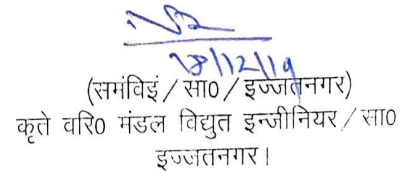 18/12/19
(समंविइं/सा0/इज्जतनगर)
कृते वरि0 मंडल विद्युत इन्जीनियर/सा0
इज्जतनगर।